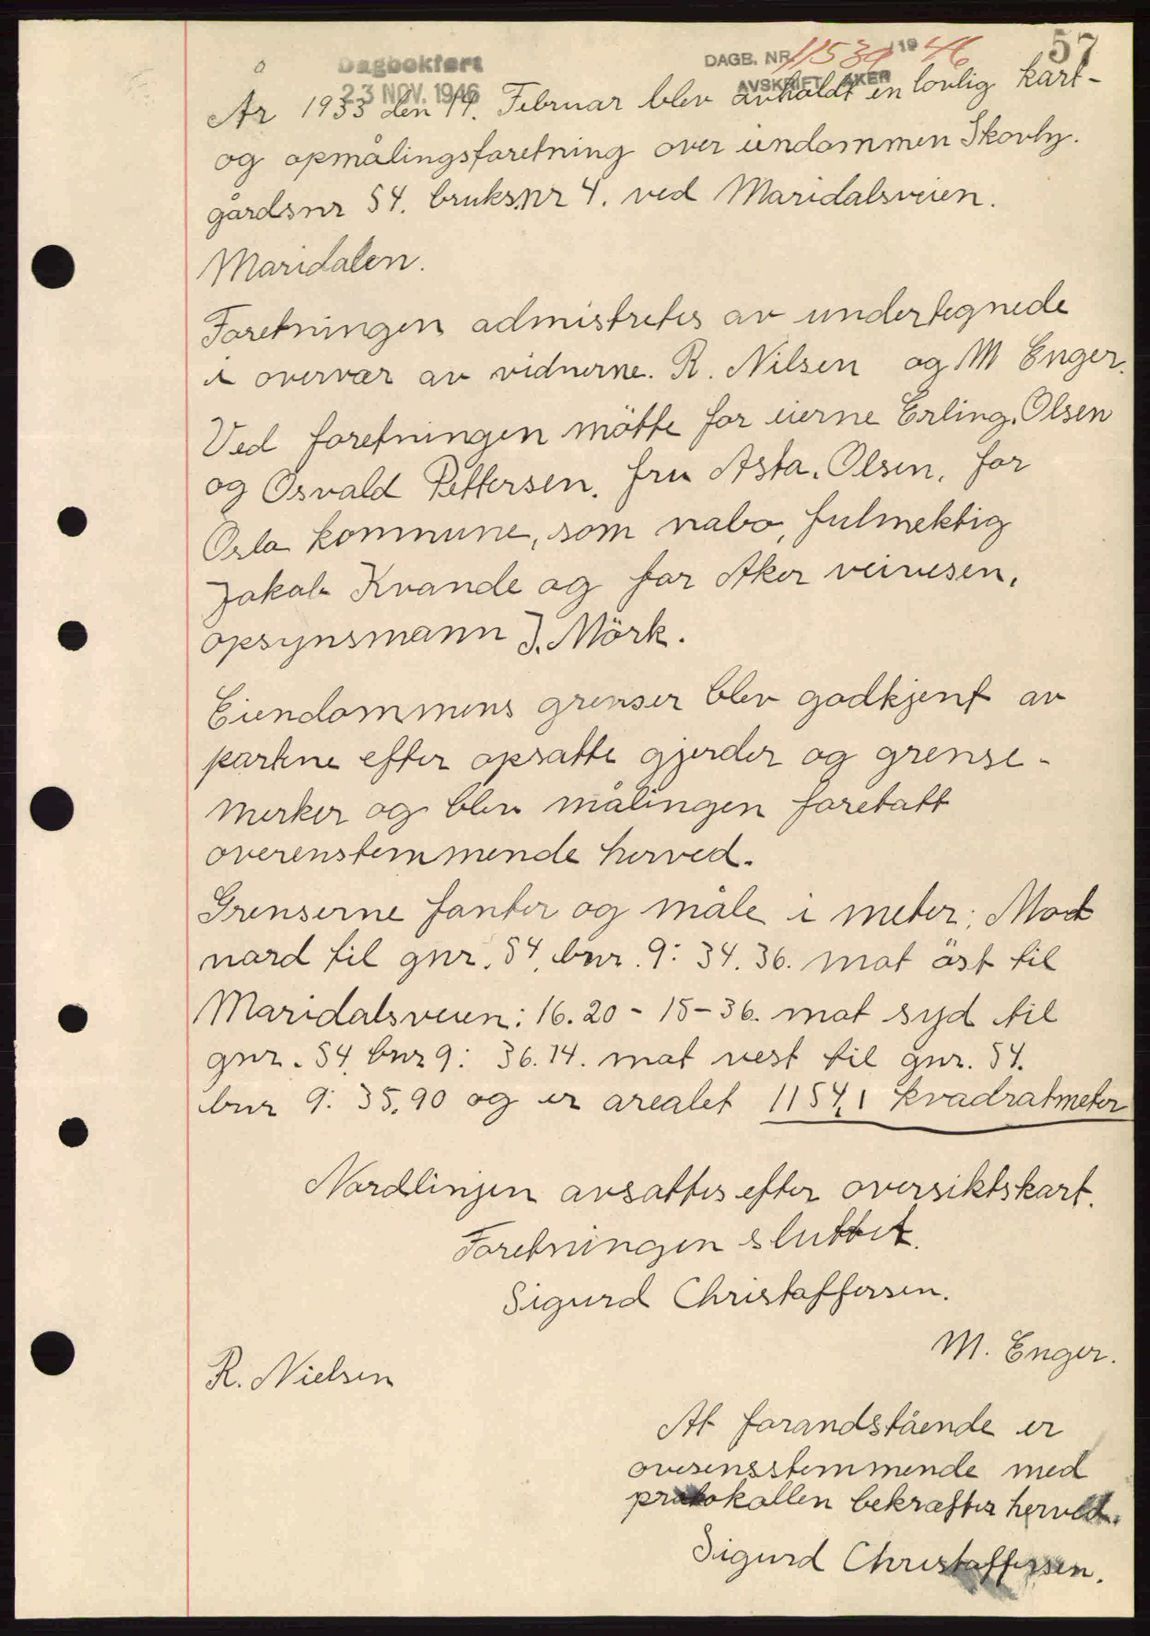 57
Dagbokført
23 NOV. 1946
DAGB. NR. 11539 1946
AVSKRIFT AKER
År 1933 den 14. Februar blev avholdt en lovlig kart-
og opmålingsforetning over eiendommen Skovly.
gårdsnr 54. bruksnr 4. ved Maridalsveien.
Maridalen.
Foretningen admistretes av undertegnede
i overvær av vidnerne. R. Nilsen og M Enger.
Ved foretningen mötte for eierne Erling. Olsen
og Osvald Pettersen. fru Asta. Olsen. for
Oslo kommune, som nabo, fulmektig
Jakob Kvande og for Aker veivesen,
opsynsmann J. Mörk.
Eiendommens grenser blev godkjent av
partene efter opsatte gjerder og grense-
merker og blev målingen foretatt
overenstemmende herved.
Grenserne fanter og måle i meter: Mod
nord til gnr. 54. bnr. 9: 34.36. mot öst til
Maridalsveien: 16.20 - 15-36. mot syd til
gnr. 54 bnr 9: 36.14. mot vest til gnr. 54.
bnr 9: 35.90 og er arealet 1154,1 kvadratmeter
Nordlinjen avsattes efter oversiktskart.
Foretningen sluttet.
Sigurd Christoffersen.
M. Enger.
R. Nielsen
At forandstående er
overensstemmende med
protokollen bekræftes herved.
Sigurd Christoffersen.